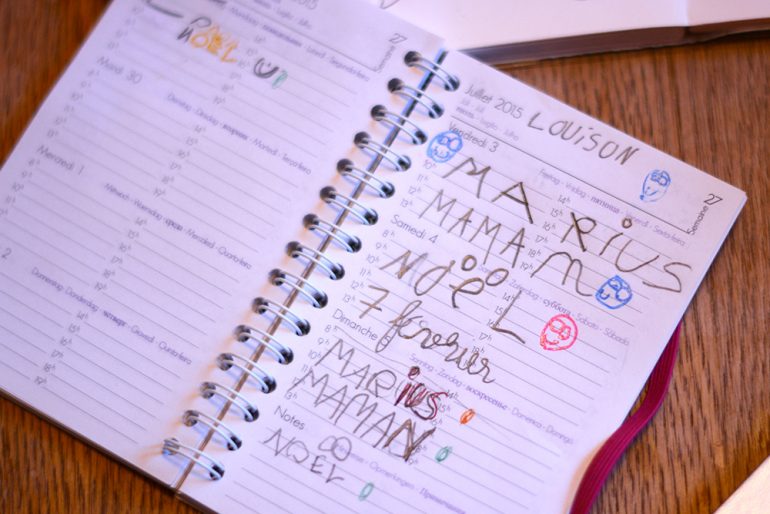 2015
27
Semaine
NOËL
Mardi 30
Dienstag · Dinsdag · вторник · Martedì · Terça-feira
Mercredi 1
Mittwoch · Woensdag · среда · Mercoledì · Quarta-feira
2
Donnerstag · Donderdag · четверг · Giovedì · Quinta-feira
Juillet 2015 LOUiSON
27
Semaine
Vendredi 3
Freitag · Vrijdag · пятница · Venerdì · Sexta-feira
MARiUS
MAMAN
Samedi 4
Samstag · Zaterdag · суббота · Sabato · Sábado
NOËL
7 février
Dimanche
Sonntag · Zondag · воскресенье · Domenica · Domingo
MARiUS
MAMAN
Notes
NOËL